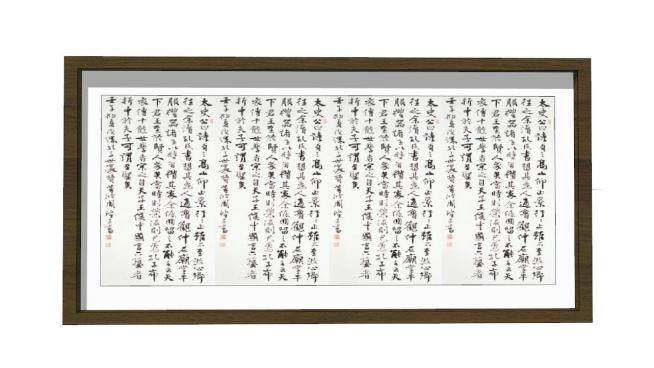 太史公曰詩有之高山仰止景行行止雖不至然心鄉
往之余讀孔氏書想見其為人適魯觀仲尼廟堂車
服禮器諸生以時習禮其家余低回留之不能去云天
下君王至於賢人眾矣當時則榮沒則已焉孔子布
衣傳十餘世學者宗之自天子王侯中國言六藝者
折中於夫子可謂至聖矣
太史公曰詩有之高山仰止景行行止雖不至然心鄉
往之余讀孔氏書想見其為人適魯觀仲尼廟堂車
服禮器諸生以時習禮其家余低回留之不能去云天
下君王至於賢人眾矣當時則榮沒則已焉孔子布
衣傳十餘世學者宗之自天子王侯中國言六藝者
折中於夫子可謂至聖矣
太史公曰詩有之高山仰止景行行止雖不至然心鄉
往之余讀孔氏書想見其為人適魯觀仲尼廟堂車
服禮器諸生以時習禮其家余低回留之不能去云天
下君王至於賢人眾矣當時則榮沒則已焉孔子布
衣傳十餘世學者宗之自天子王侯中國言六藝者
折中於夫子可謂至聖矣
太史公曰詩有之高山仰止景行行止雖不至然心鄉
往之余讀孔氏書想見其為人適魯觀仲尼廟堂車
服禮器諸生以時習禮其家余低回留之不能去云天
下君王至於賢人眾矣當時則榮沒則已焉孔子布
衣傳十餘世學者宗之自天子王侯中國言六藝者
折中於夫子可謂至聖矣